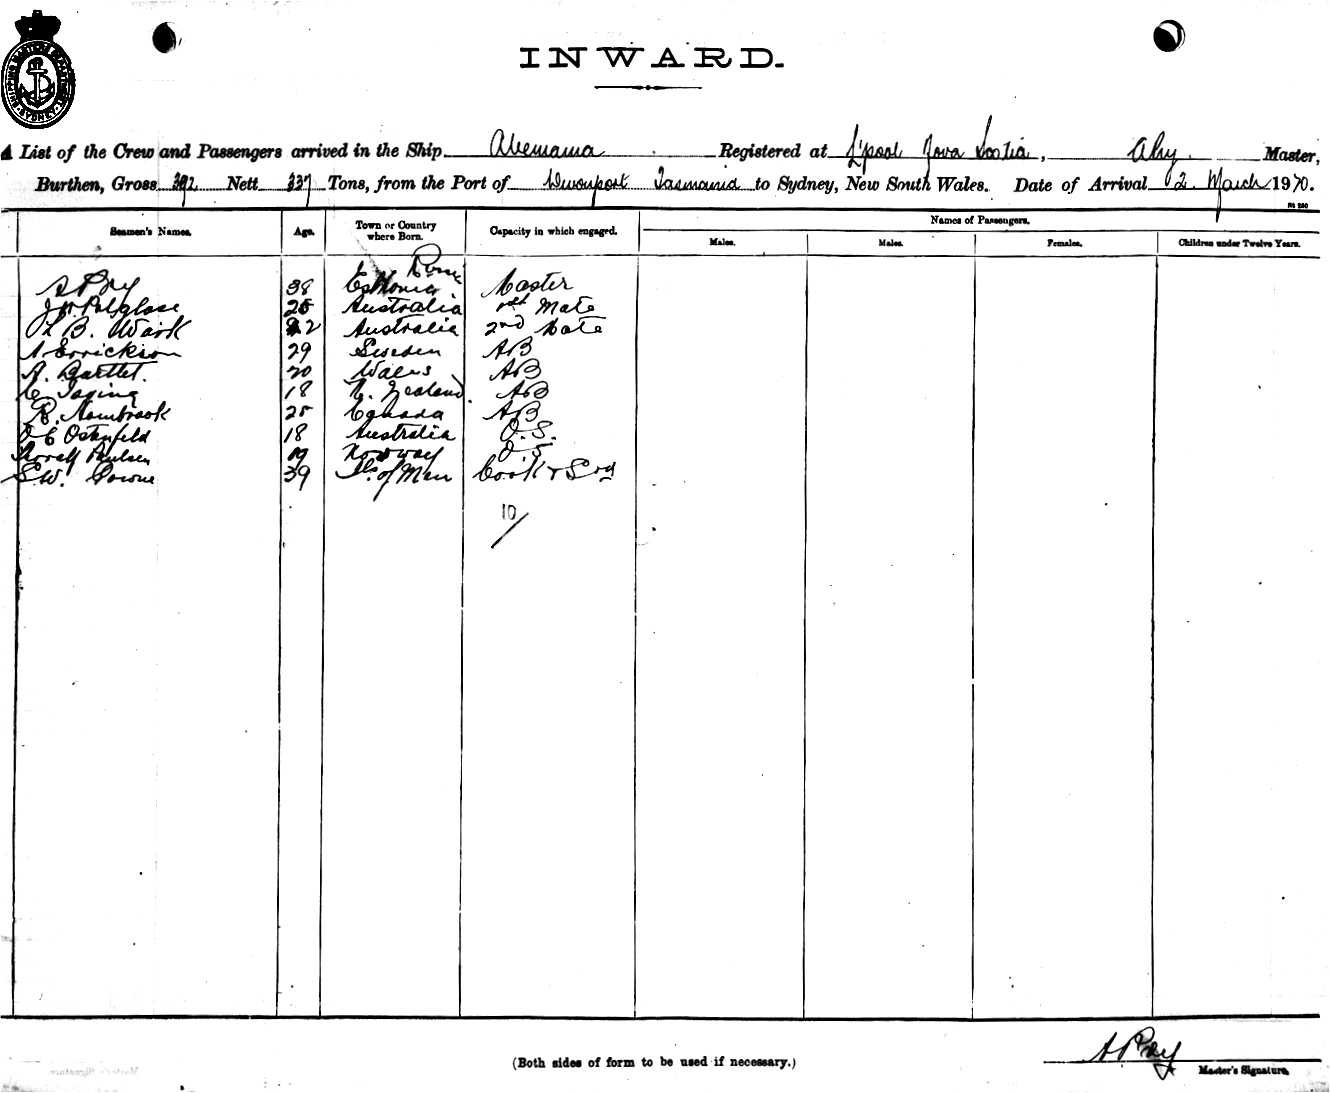 INWARD.
A List of the Crew and Passengers arrived in the Ship Abemama Registered at L'pool Nova Scotia, Master,
Burthen, Gross 392 Nett 337 Tons, from the Port of Devonport Tasmania to Sydney, New South Wales. Date of Arrival 2 March 1910.
Seamen's Names. Age. Town or Country where Born. Capacity in which engaged. Names of Passengers.
Males. Males. Females. Children under Twelve Years.
38 Esthonia Master
J. W. Polglase 25 Australia 1st Mate
L B. Wark 22 Australia 2nd Mate
A Errickson 29 Sweden AB
A. Bartlet. 20 Wales AB
18 N. Zealand. AB
R. Hambrook 25 Canada AB
Ostenfeld 18 Australia O.S.
Paulsen 19 Norway O.S
S.W. 39 Is. of Man Cook & Std
10
(Both sides of form to be used if necessary.)
Master's Signature.